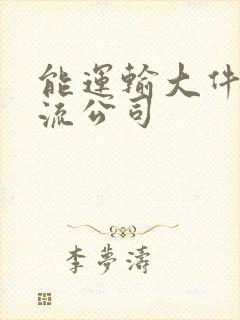 能運輸大件
流公司
李夢濤